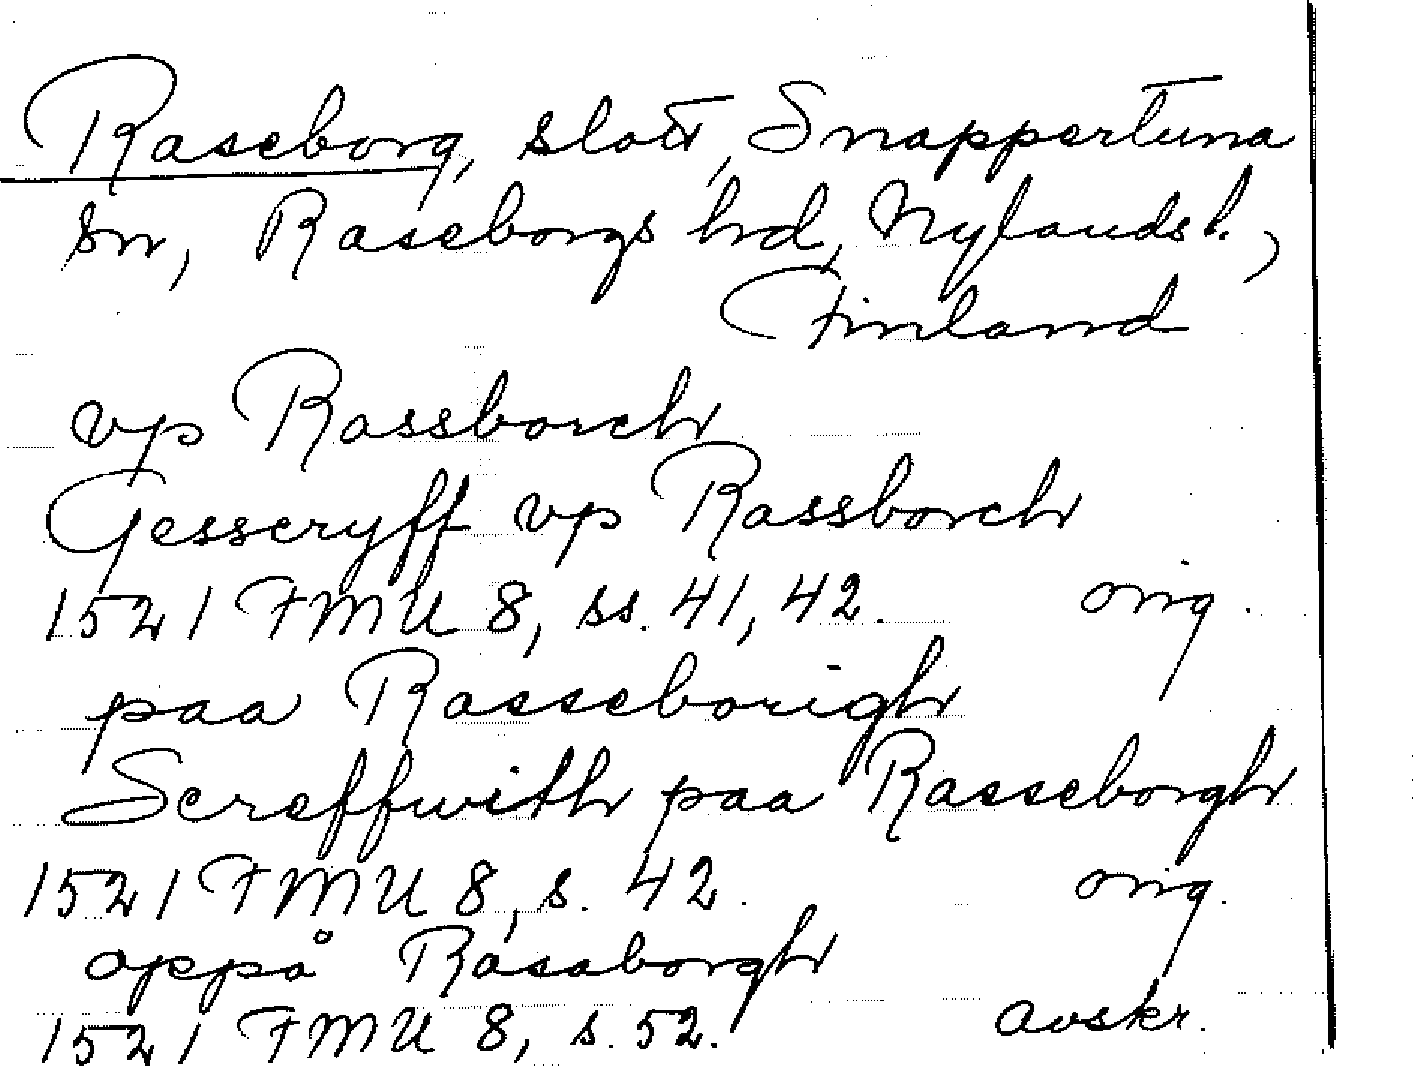 Raseborg, slott, Snappertuna
sn, Raseborgs hrd, Nylands l.,
Finland
vp Rassborch
Gesseryff vp Rassborch
1521 FMU 8, ss. 41, 42. orig.
paa Rasseborigh
Screffwith paa Rasseborgh
1521 FMU 8, s. 42. orig.
oppå Rasaborgh
1521 FMU 8, s. 52. avskr.